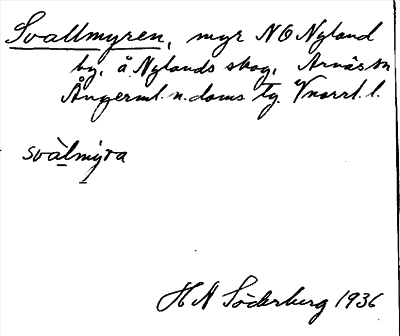 Svallmyren, myr NO Nyland
by, å Nylands skog, Arnäs sn
Ångerml. n. doms tg. Vnorrl. l.
svàlmýra
H A Söderberg 1936